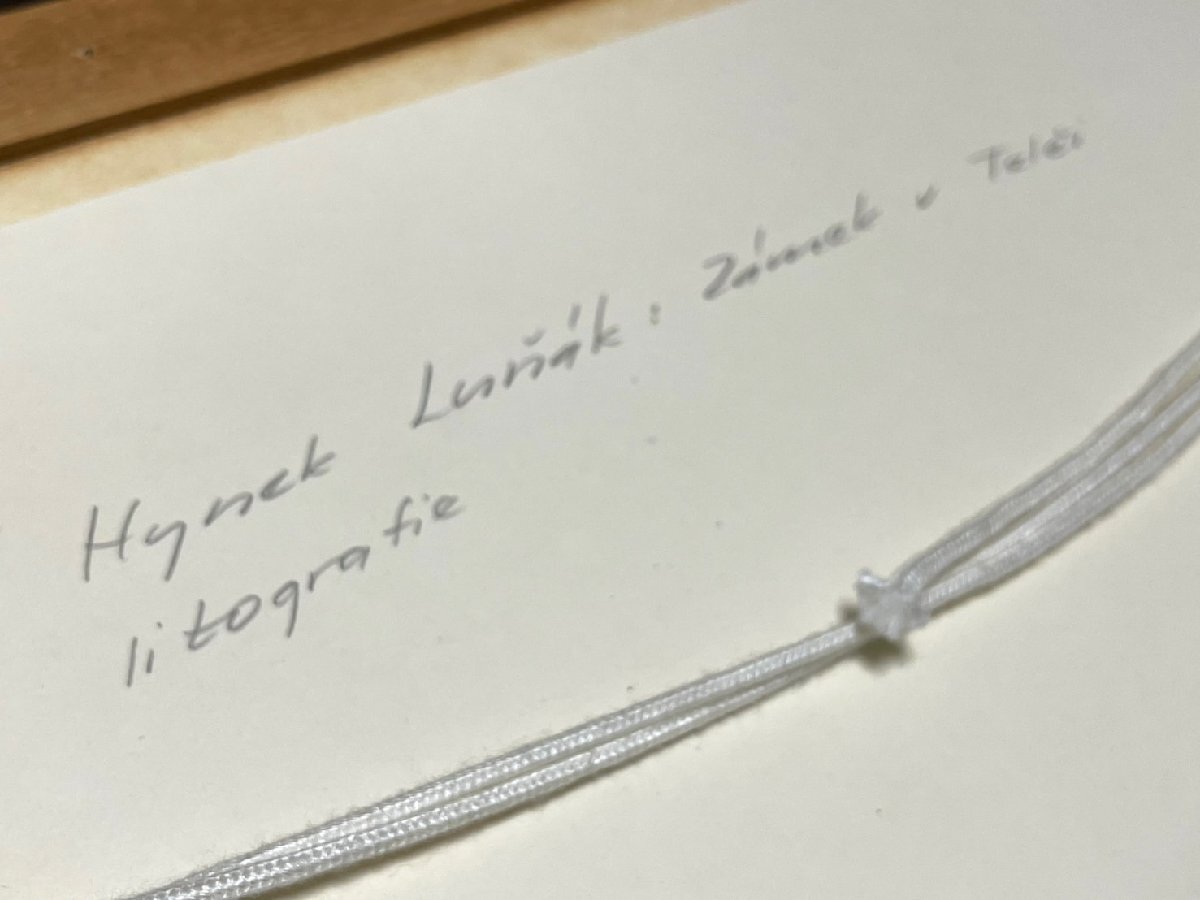 Hynek Luňák: Zámek v Telči
litografie